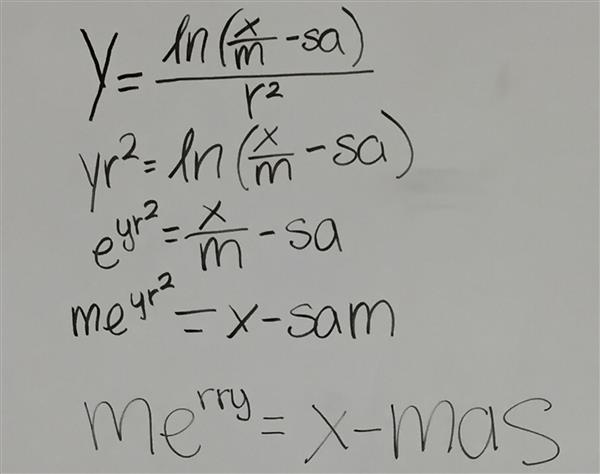 y = ln(x/m - sa) / r²
yr² = ln(x/m - sa)
e^yr² = x/m - sa
me^yr² = x - sam
me^rry = x - mas